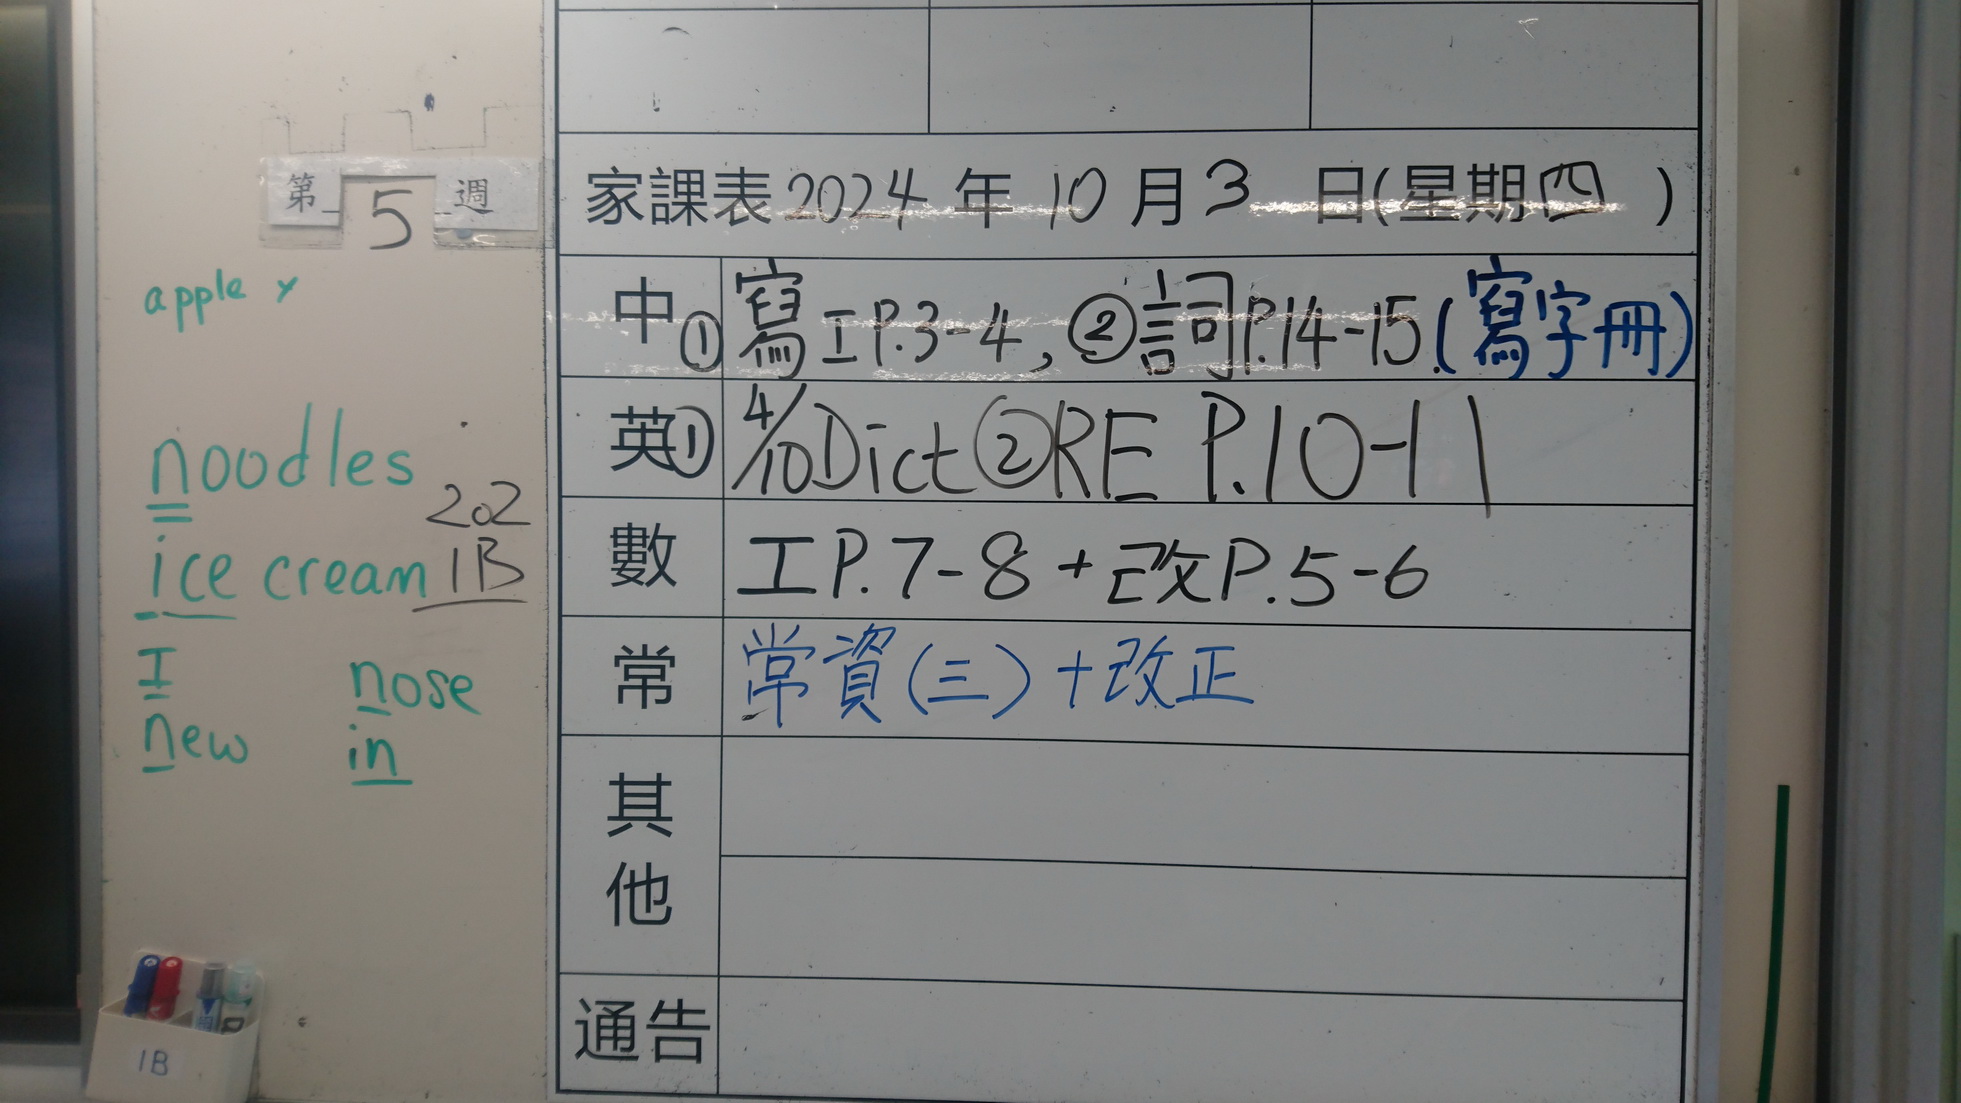 第 5 週
apple x
noodles
202
ice cream 1B
I nose
new in
1B
家課表 2024 年 10 月 3 日(星期四)
中 ①寫工P.3-4, ②詞P.14-15(寫字冊)
英 ①4/10 Dict ②RE P.10-11
數 工P.7-8 + 改P.5-6
常 常資(三)+改正
其他
通告